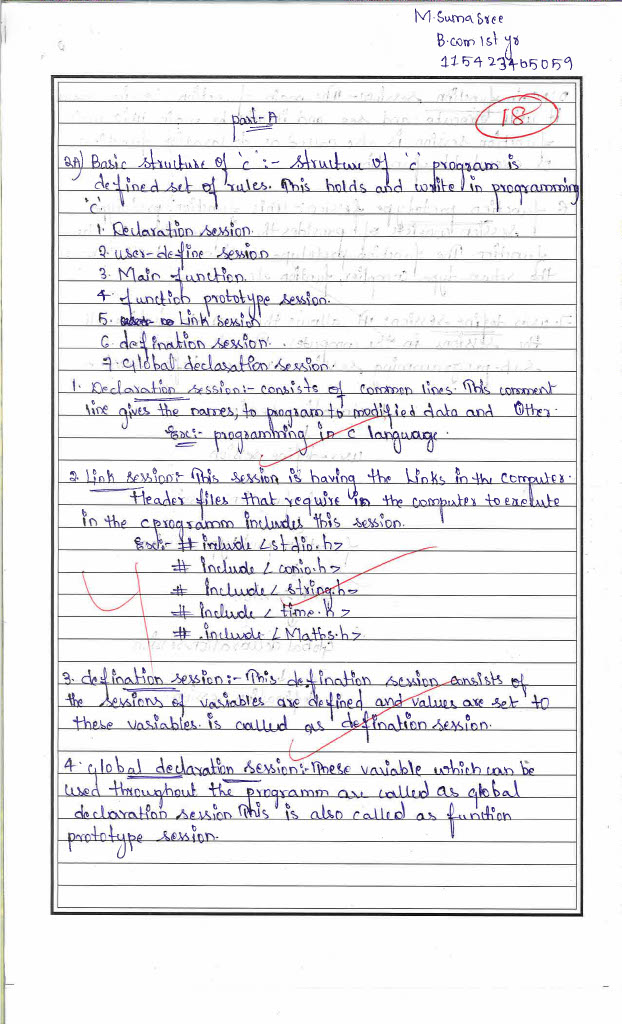 M. Suma Sree
B.com 1st yr
115423405059
part-A
18
2A) Basic structure of 'c' :- structure of 'c' program is
defined set of rules. This holds and write in programming
'c'.
1. Declaration session.
2. user-define session
3. Main function.
4. function prototype session.
5. Link session
6. defination session.
7. Global declaration session.
1. Declaration session:- consists of common lines. This comment
line gives the names, to program to modified data and Other.
Ex:- programming in c language.
2. Link session:- This session is having the Links in the Computer.
Header files that require in the computer to execute
in the cprogramm includes this session.
Ex:- # include <stdio.h>
# Include < conio.h>
# Include < string.h>
# Include < time.h>
# .include < Maths.h>
4
3. defination session:- This defination session consists of
the sessions of variables are defined and values are set to
these variables. is called as defination session.
4. global declaration session:- These variable which can be
used throughout the programm are called as global
declaration session This is also called as function
prototype session.